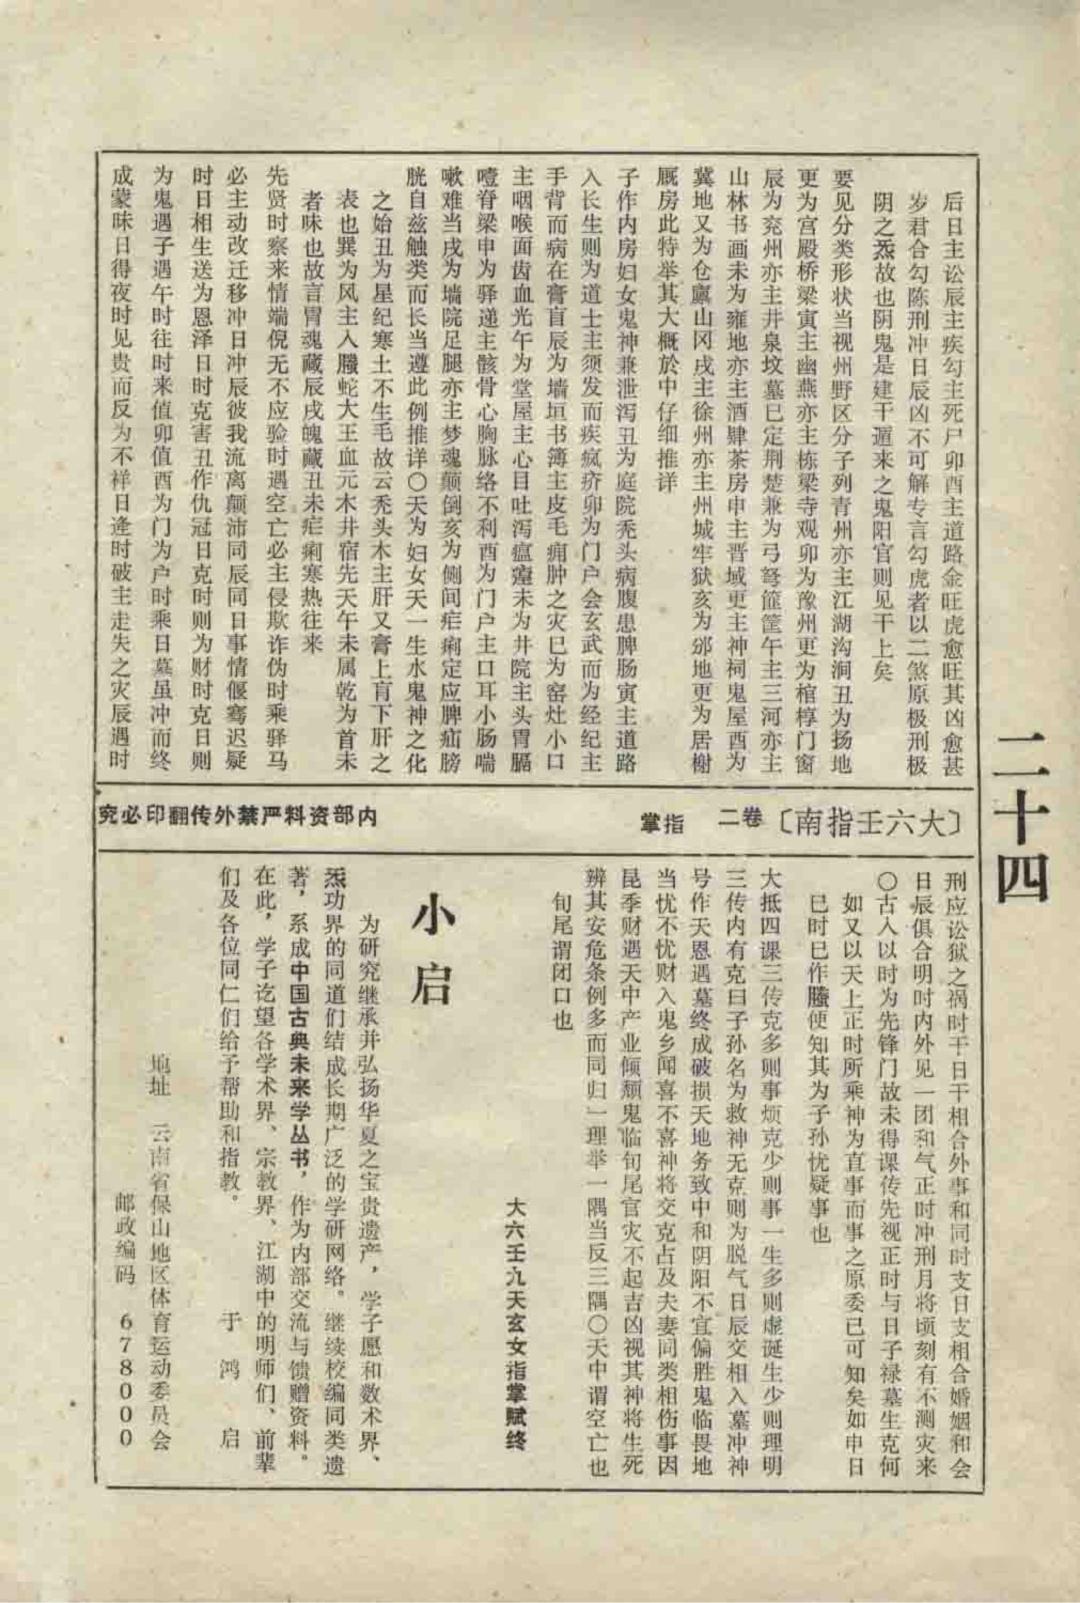 后日主讼辰主疾勾主死尸卯酉主道路金旺虎愈旺其凶愈甚
岁君合勾陈刑冲日辰凶不可解专言勾虎者以二煞原极刑极
阴之炁故也阴鬼是建干遁来之鬼阳官则见干上矣
要见分类形状当视州野区分子列青州亦主江湖沟涧丑为扬地
更为宫殿桥梁寅主幽燕亦主栋梁寺观卯为豫州更为棺椁门窗
辰为兖州亦主井泉坟墓巳定荆楚兼为弓弩筐筐午主三河亦主
山林书画未为雍地亦主酒肆茶房申主晋域更主神祠鬼屋酉为
冀地又为仓廪山冈戌主徐州亦主州城牢狱亥为邠地更为居榭
厩房此特举其大概於中仔细推详
子作内房妇女鬼神兼泄泻丑为庭院秃头病腹患脾肠寅主道路
入长生则为道士主须发而疾疯疥卯为门户会玄武而为经纪主
手背而病在膏盲辰为墙垣书簿主皮毛痈肿之灾巳为窑灶小口
主咽喉面齿血光午为堂屋主心目吐泻瘟瘽未为井院主头胃膈
噎脊梁申为驿递主骸骨心胸脉络不利酉为门户主口耳小肠喘
嗽难当戌为墙院足腿亦主梦魂颠倒亥为侧间疟痢定应脾疝膀
胱自兹触类而长当遵此例推详〇天为妇女天一生水鬼神之化
之始丑为星纪寒土不生毛故云秃头木主肝又膏上肓下肝之
表也巽为风主人螣蛇大王血元木井宿先天午未属乾为首未
者味也故言胃魂藏辰戌魄藏丑未疟痢寒热往来
先贤时察来情端倪无不应验时遇空亡必主侵欺诈伪时乘驿马
必主动改迁移冲日冲辰彼我流离颠沛同辰同日事情偃蹇迟疑
时日相生送为恩泽日时克害丑作仇冠日克时则为财时克日则
为鬼遇子遇午时往时来值卯值酉为门为户时乘日墓虽冲而终
成蒙昧日得夜时见贵而反为不祥日逢时破主走失之灾辰遇时
二十四
〔大六壬指南〕 卷二 指掌 内部资料严禁外传翻印必究
刑应讼狱之祸时干日干相合外事和同时支日支相合婚姻和会
日辰俱合明时内外见一团和气正时冲刑月将顷刻有不测灾来
〇古人以时为先锋门故未得课传先视正时与日子禄墓生克何
如又以天上正时所乘神为直事而事之原委已可知矣如申日
巳时巳作螣便知其为子孙忧疑事也
大抵四课三传克多则事烦克少则事一生多则虚诞生少则理明
三传内有克曰子孙名为救神无克则为脱气日辰交相入墓冲神
号作天恩遇墓终成破损天地务致中和阴阳不宜偏胜鬼临畏地
当忧不忧财入鬼乡闻喜不喜神将交克占及夫妻同类相伤事因
昆季财遇天中产业倾颓鬼临旬尾官灾不起吉凶视其神将生死
辨其安危条例多而同归一理举一隅当反三隅〇天中谓空亡也
旬尾谓闭口也
大六壬九天玄女指掌赋终
小启
为研究继承并弘扬华夏之宝贵遗产，学子愿和数术界、
炁功界的同道们结成长期广泛的学研网络。继续校编同类遗
著，系成中国古典未来学丛书，作为内部交流与馈赠资料。
在此，学子讫望各学术界、宗教界、江湖中的明师们、前辈
们及各位同仁们给予帮助和指教。
于鸿启
地址 云南省保山地区体育运动委员会
邮政编码 678000